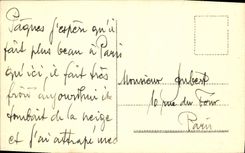 Pâques j'espère qu'il
fait plus beau à Paris
qu'ici, il fait très
froid aujourd'hui il
tombait de la neige
et j'ai attrapé mes
Monsieur Aubert
10 rue du Four
Paris